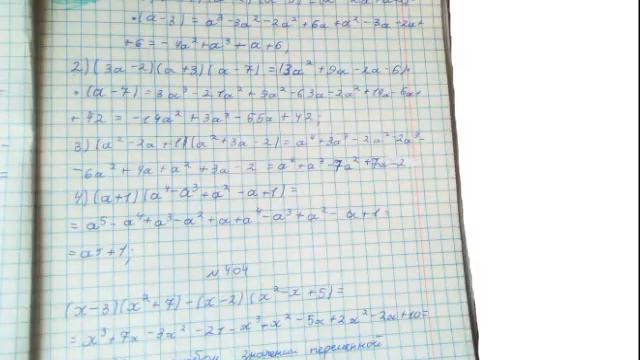 ·(a-3) = a³-3a²-2a²+6a+a²-3a-2a+
+6 = -4a²+a³+a+6;
2) (3a-2)(a+3)(a-7) = (3a²+9a-2a-6)·
·(a-7) = 3a³-21a²+9a²-63a-2a²+14a-6a+
+42 = -14a²+3a³-55a+42;
3) (a²-2a+1)(a²+3a-2) = a⁴+3a³-2a²-2a³-
-6a²+4a+a²+3a-2 = a⁴+a³-7a²+7a-2
4) (a+1)(a⁴-a³+a²-a+1) =
= a⁵-a⁴+a³-a²+a+a⁴-a³+a²-a+1 =
= a⁵+1;
№404
(x-3)(x²+7)-(x-2)(x²-x+5) =
= x³+7x-3x²-21-x³+x²-5x+2x²-2x+10=
значении переменной